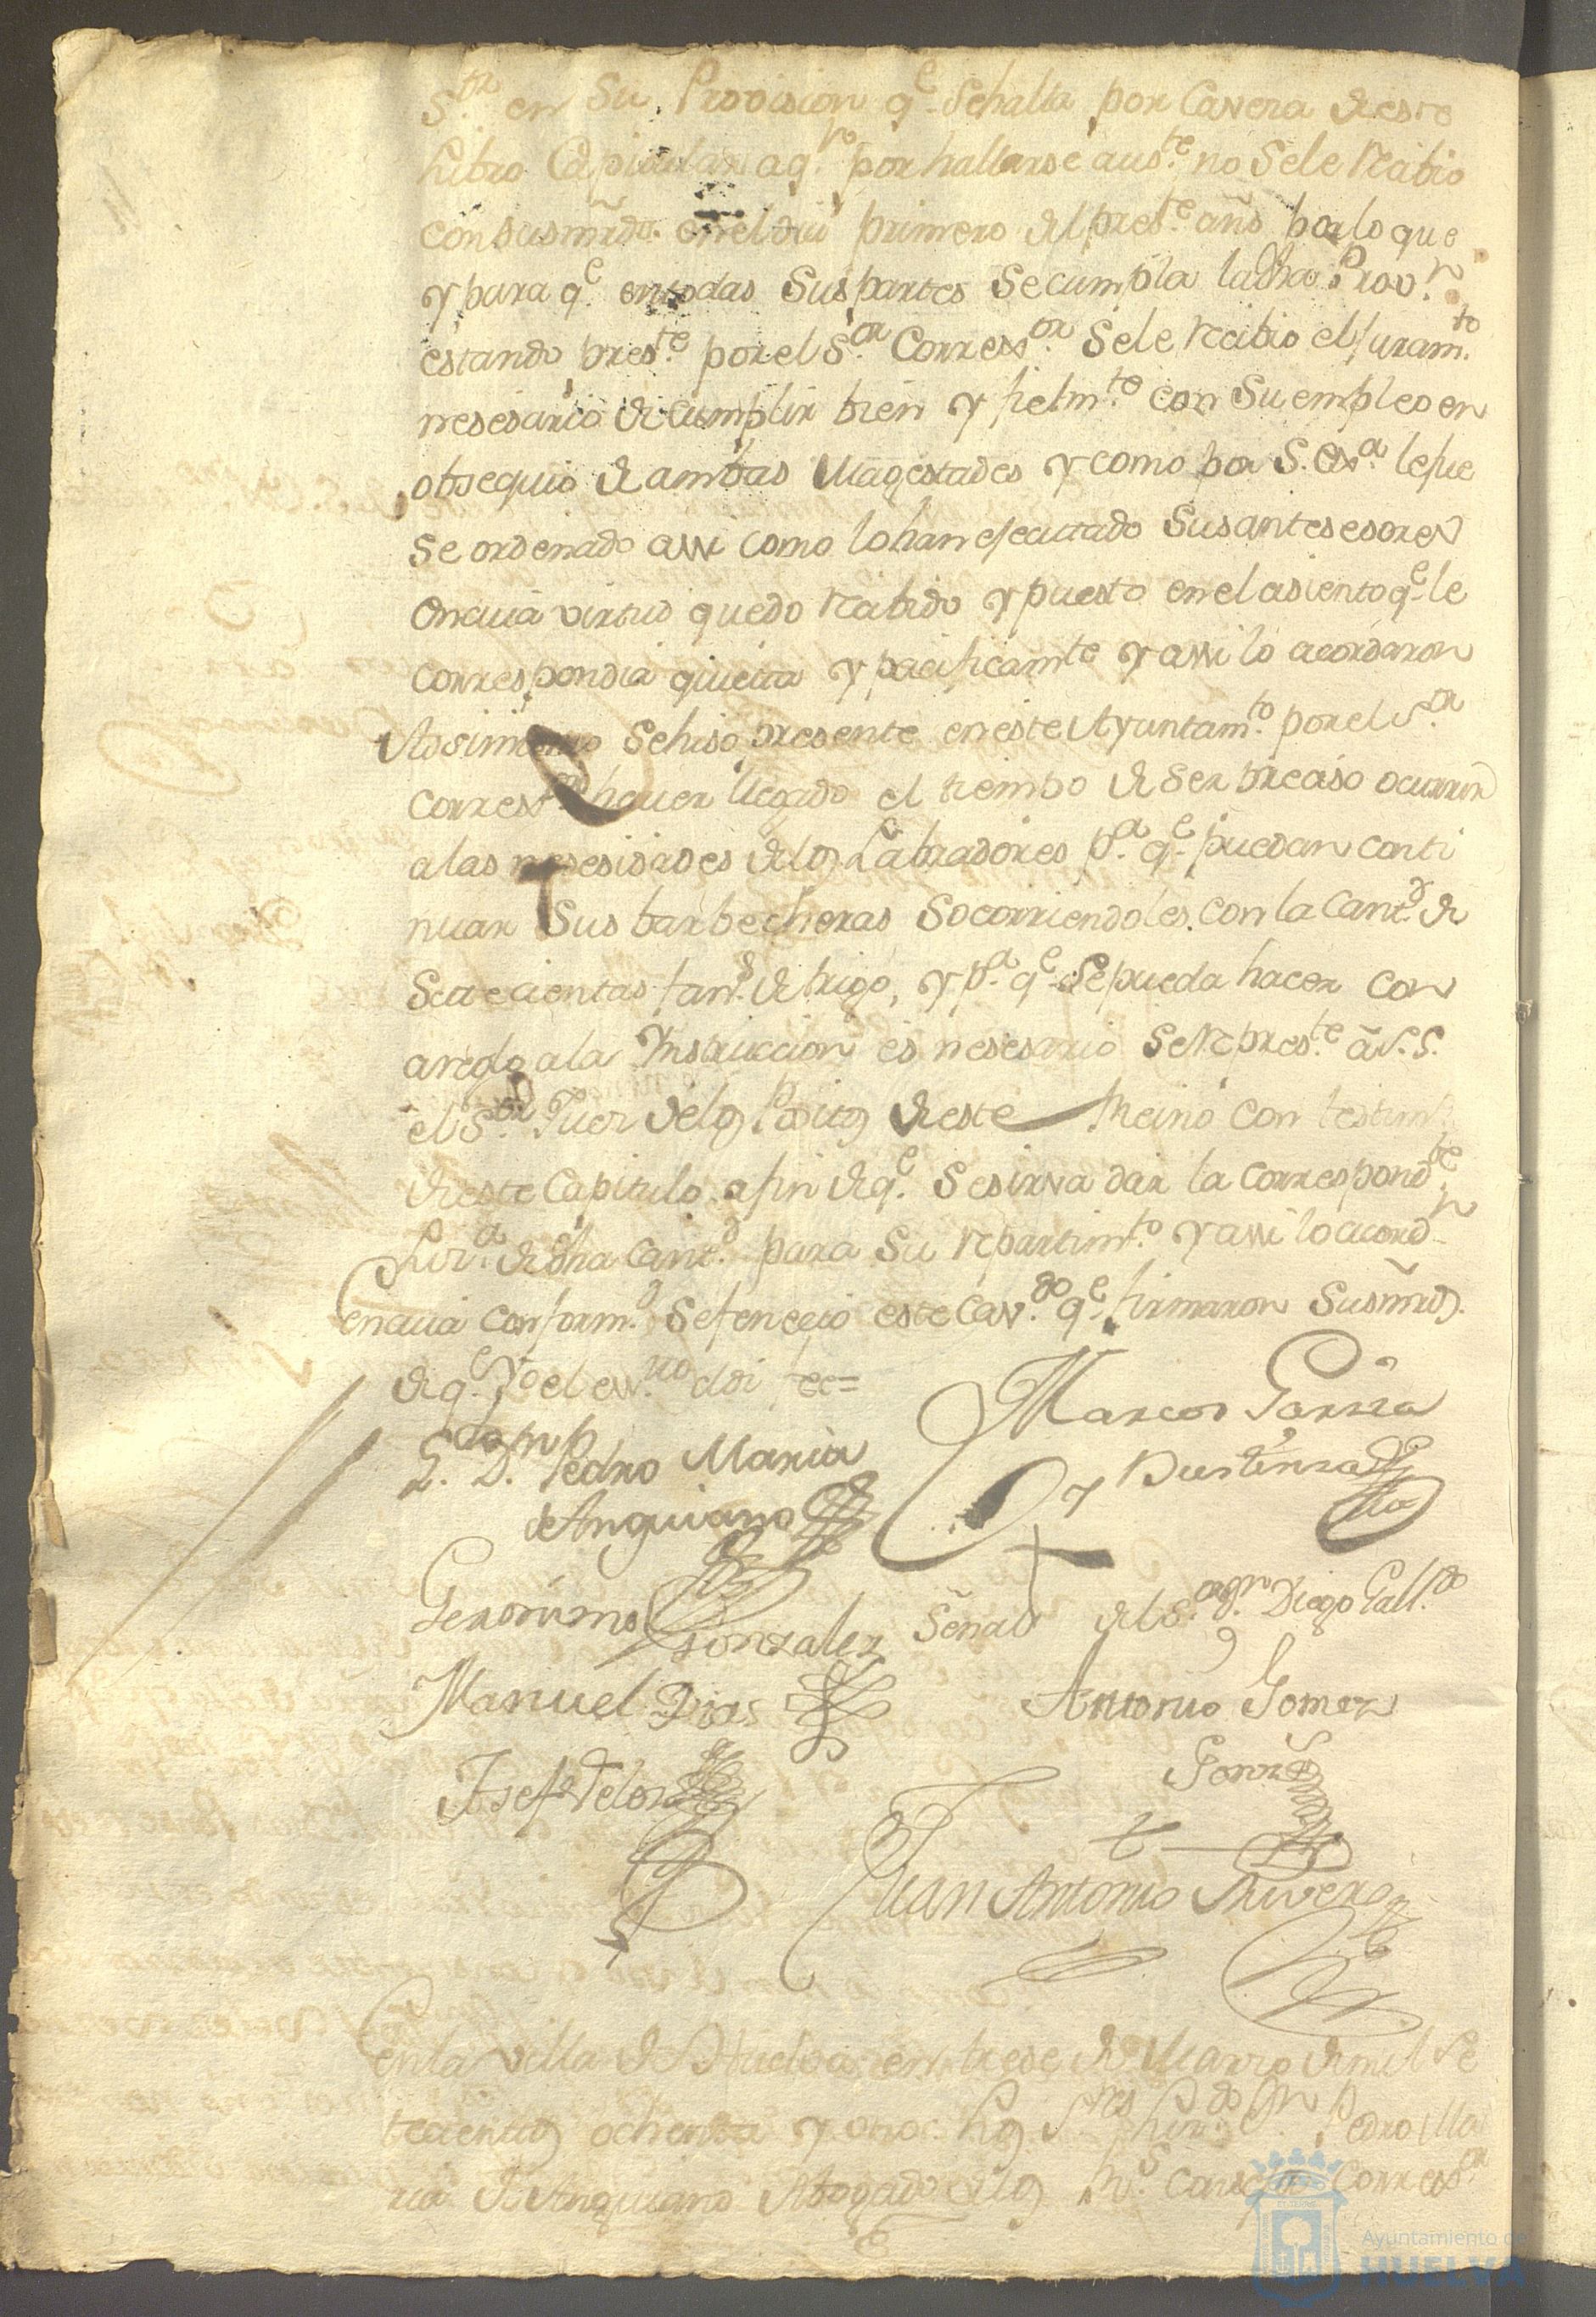 S.or en su Provision q.e se halla por Cavera de este
Libro Capitular a q.n por hallarse aus.te no se le recibio
con sus mrds. en el dia primero del pres.te año por lo que
y para q.e en todas sus partes se cumpla la dha Prov.n
estando pres.te por el S.or Corress.or se le recibio el juram.to
nesesario de cumplir bien y fielm.te con su empleo en
obsequio de ambas Magestades y como por S. Ex.a le fue
se ordenado assi como lo han ejecutado sus antesesores
en cuia virtud quedo recibido y puesto en el asiento q.e le
correspondia quieta y pacificam.te y assi lo acordaron
Assimismo se hiso presente en este Ayuntam.to por el S.or
Corress.or haver llegado el tiempo de ser preciso ocurrir
a las nesesidades de los Labradores p.a q.e puedan conti
nuar sus barbecheras socorriendoles con la Cant.d de
Setecientas fan.s de trigo, y p.a q.e se pueda hacer con
areglo a la Instruccion es nesesario se repres.te a S. S.
el S.or Juez de los Positos de este Reino con testim.
de este Capitulo a fin de q.e se sirva dar la correspond.te
Liz.a de dha Cant.d para su repartim.to y assi lo acord.n
En cuia conform.d se fenecio este Cav.do q.e firmaron sus mrds.
de q.e Yo el ess.no doi fee=
L.do D.n Pedro Maria
de Anguiano
Marcos Garsia
y Bustensa
Geronimo Gonzalez
Señal del S.or D.n Diego Gall.do
Manuel Dias
Antonio Gomez
Josef Velo
Juan Antonio Rivera
En la villa de Huelva en trese de Marzo de mil se
tecientos ochenta y ocho los S.res Liz.do D.n Pedro Ma
ria de Anguiano Abogado de los R.s Consejos Corress.or